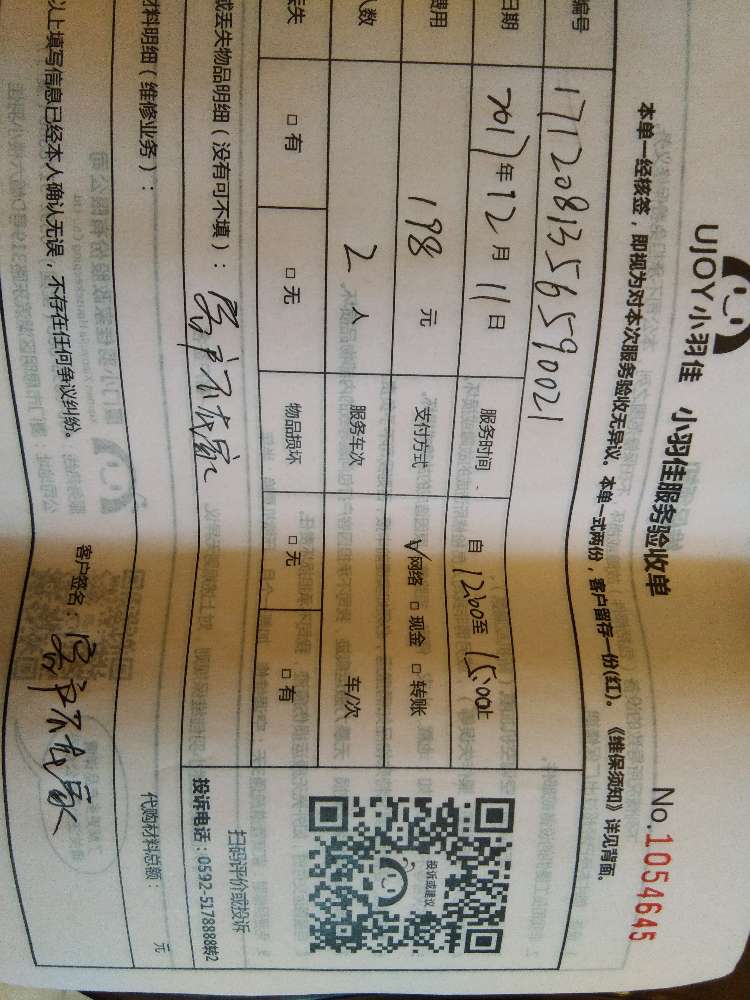 UJOY小羽佳 小羽佳服务验收单
No.1054645
本单一经核签，即视为对本次服务验收无异议。本单一式两份，客户留存一份(红)。《维保须知》详见背面。
编号 1712081356590021
日期 2017年12月11日 服务时间 自 12:00至 15:00止
费用 198 元 支付方式 √网络 □现金 □转账
人数 2 人 服务车次 车/次
丢失 □有 □无 物品损坏 □无 □有
投诉或建议
扫码评价或投诉
投诉电话：0592-5178888转2
或丢失物品明细（没有可不填）： 客户不在家
材料明细（维修业务）： 代购材料总额： 元
以上填写信息已经本人确认无误，不存在任何争议纠纷。 客户签名： 客户不在家